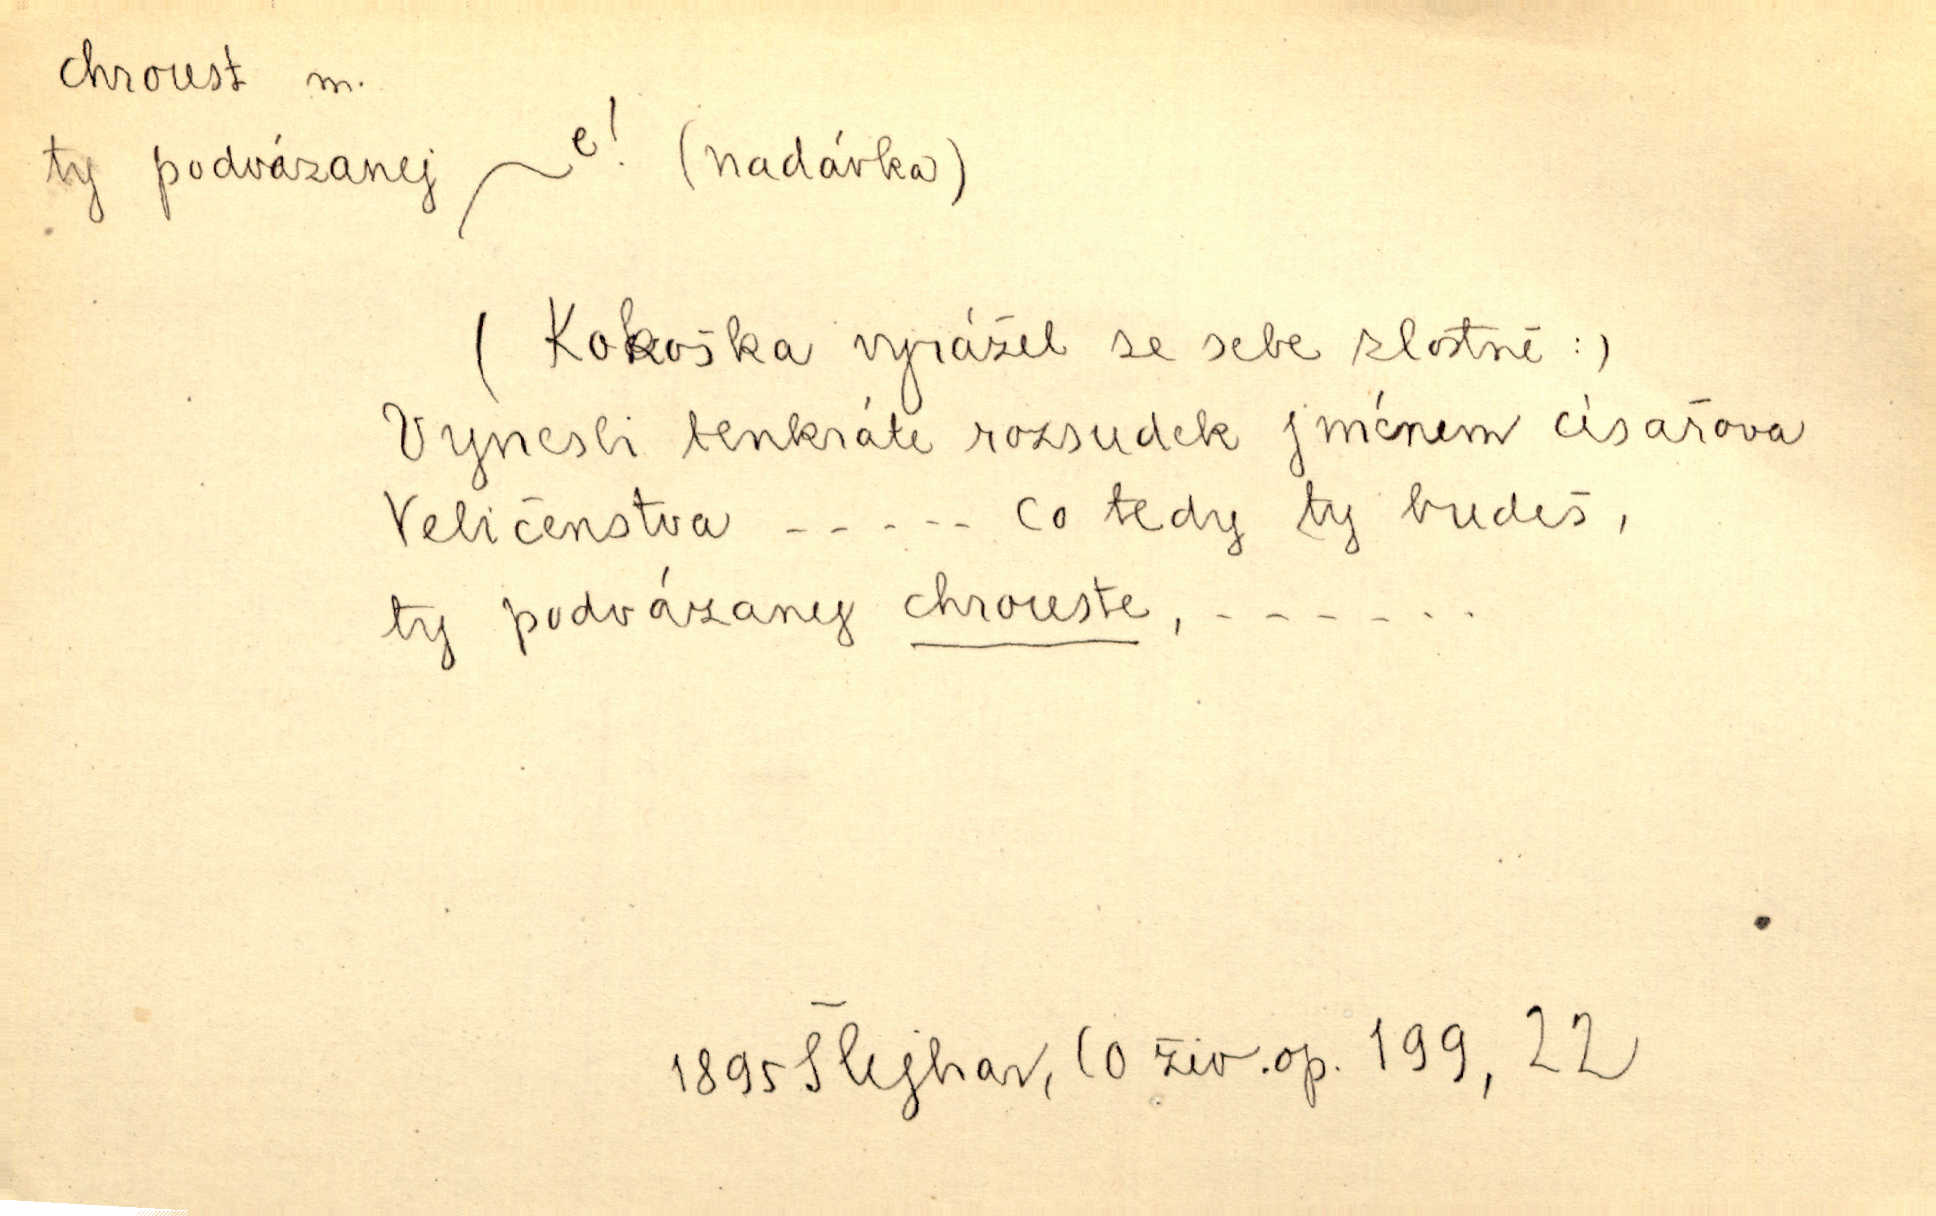 chroust m.
ty podvázanej ~e! (nadávka)
( Kokoška vyrážel ze sebe zlostně :)
Vynesli tenkráte rozsudek jménem císařova
Veličenstva ----- Co tedy ty budeš,
ty podvázanej chrouste, ------
1895 Šlejhar, Co živ. op. 199, 22